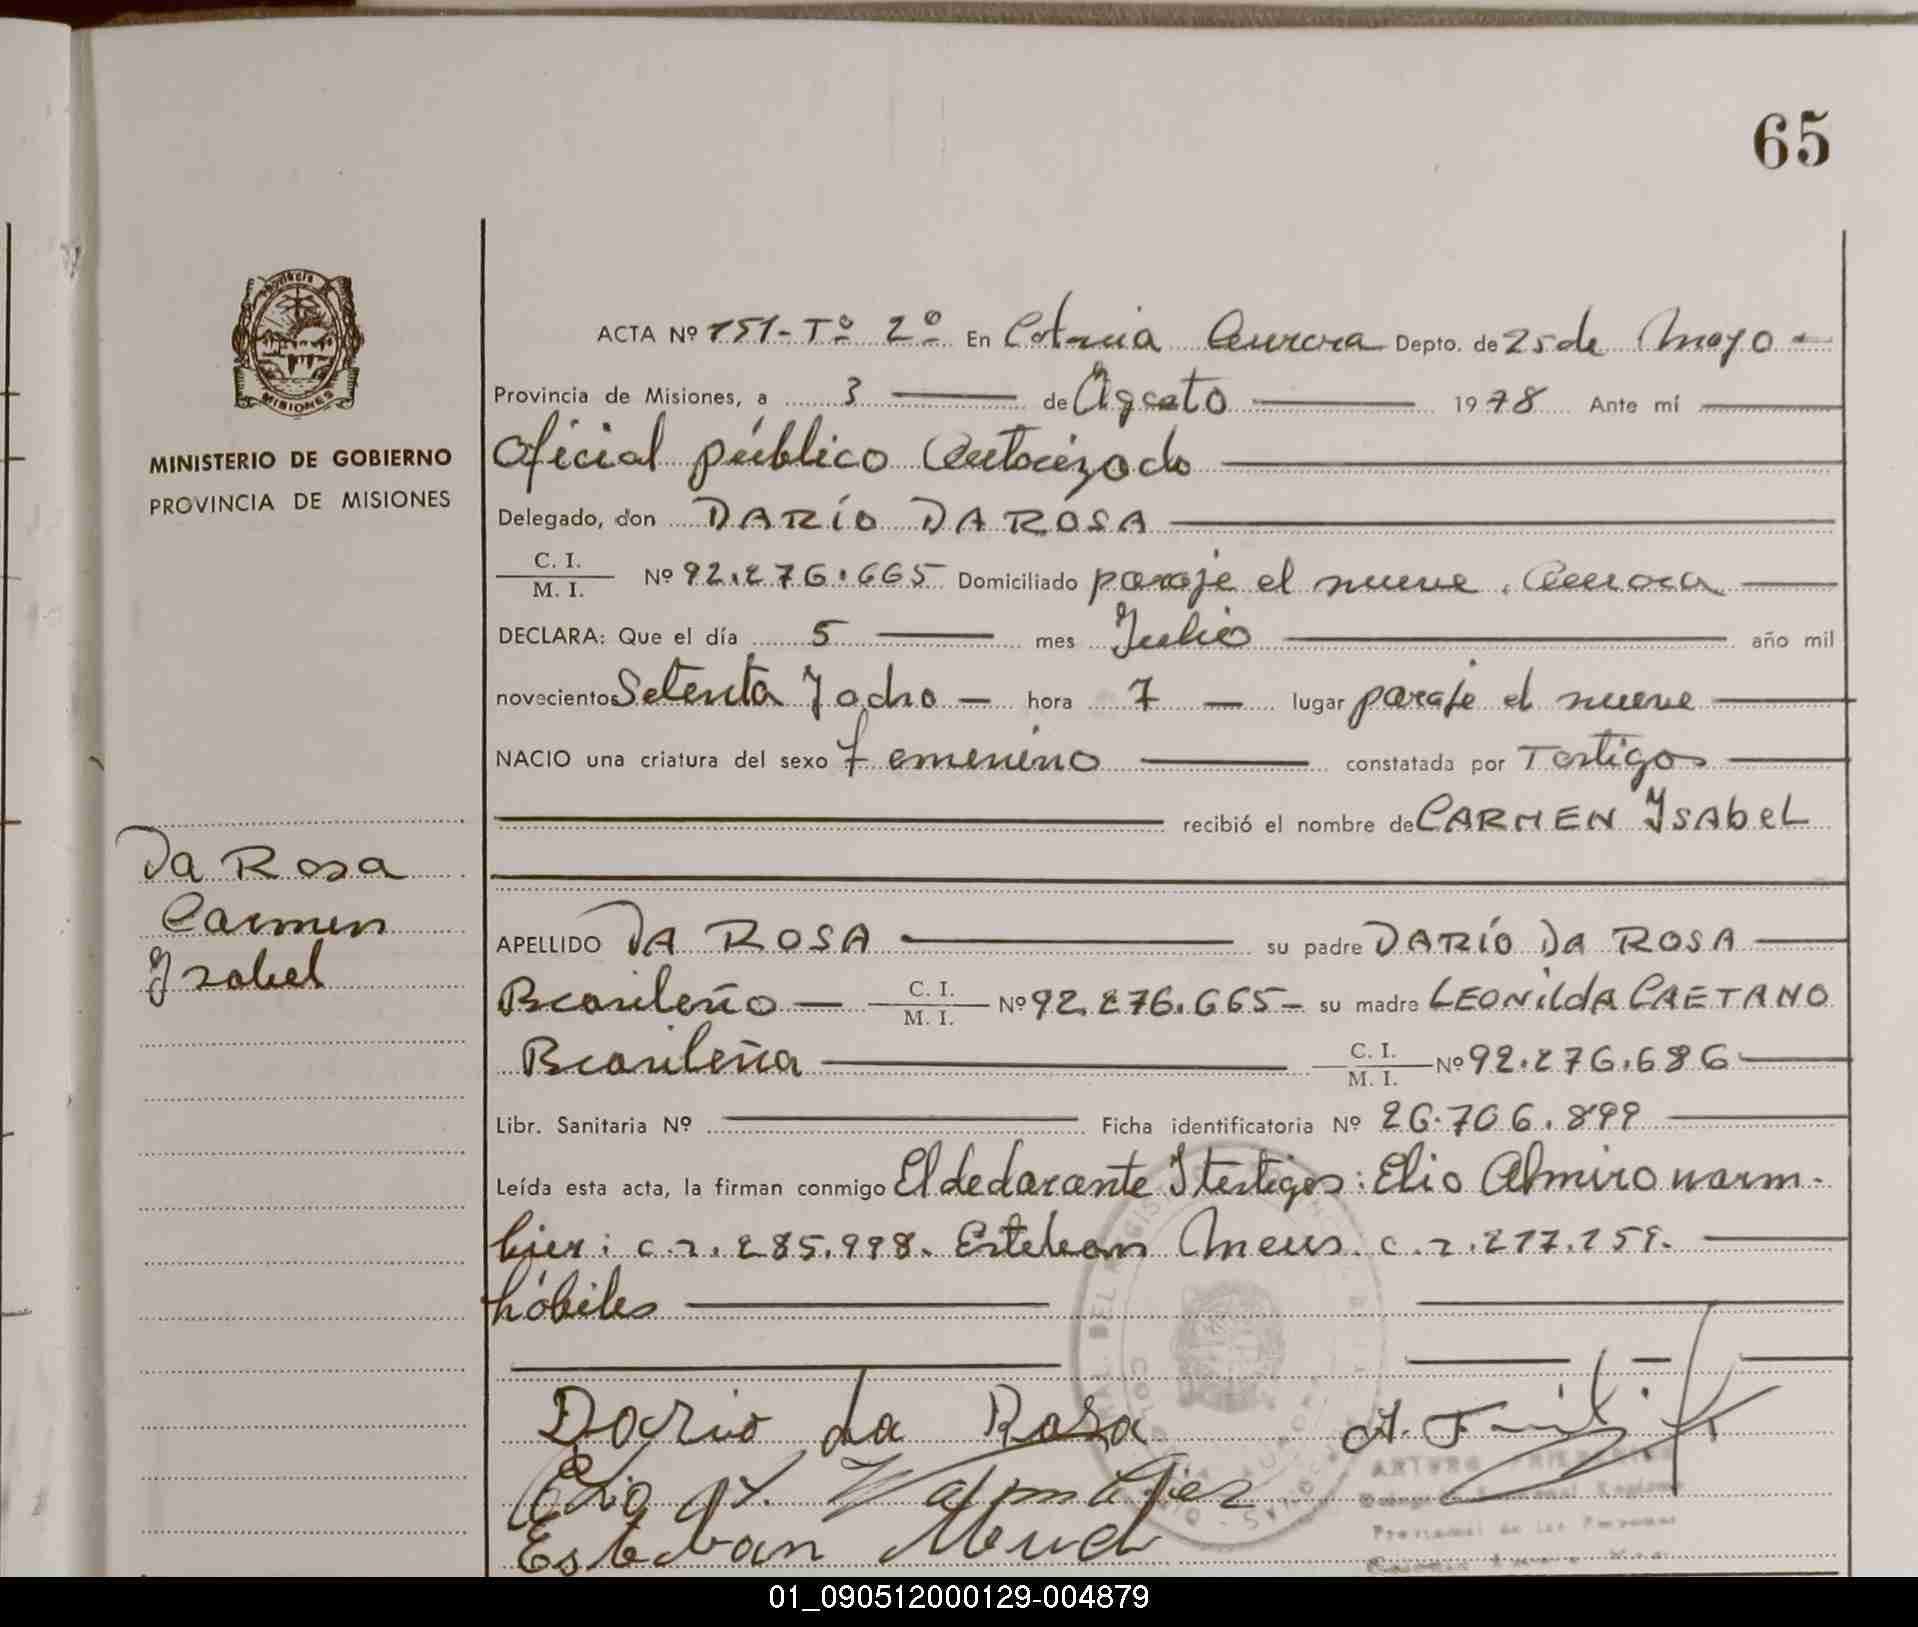 65
MINISTERIO DE GOBIERNO
PROVINCIA DE MISIONES
Da Rosa
Carmen
Ysabel
ACTA Nº 151-Tº 2º En Colonia Aurora Depto. de 25 de Mayo -
Provincia de Misiones, a 3 de Agosto 1978 Ante mí
Oficial público Autorizado
Delegado, don DARÍO DA ROSA
C. I. / M. I. Nº 92.276.665 Domiciliado paraje el nueve. Aurora
DECLARA: Que el día 5 mes Julio año mil
novecientos Setenta Y ocho — hora 7 — lugar paraje el nueve
NACIO una criatura del sexo femenino constatada por Testigos
recibió el nombre de CARMEN YSAbEL
APELLIDO DA ROSA su padre DARÍO Da ROSA
Brasileño — C. I. / M. I. Nº 92.276.665- su madre LEONildA CAETANO
Brasileña C. I. / M. I. Nº 92.276.686
Libr. Sanitaria Nº Ficha identificatoria Nº 26.706.899
Leída esta acta, la firman conmigo El declarante Y testigos: Elio Almiro warm-
bier: c.i. 285.998. Esteban Meus. c.i. 217.151.
hábiles
Dario da Rosa
Elio A.
Esteban
ARTURO
01_090512000129-004879